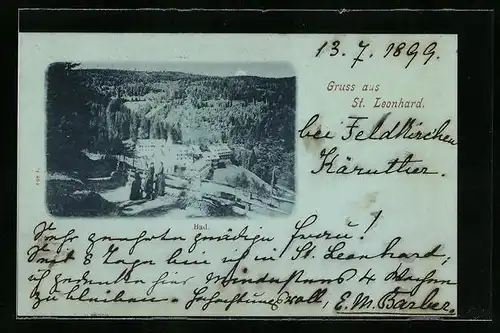 13. 7. 1899.
Gruss aus
St. Leonhard.
bei Feldkirchen
Kärnthen.
Bad.
Sehr geehrte gnädige Frau!
Seit 8 Tage bin ich in St. Leonhard,
ich gedenke hier mindestens 4 Wochen
zu bleiben. Hochachtungsvoll, E. M. Barber.